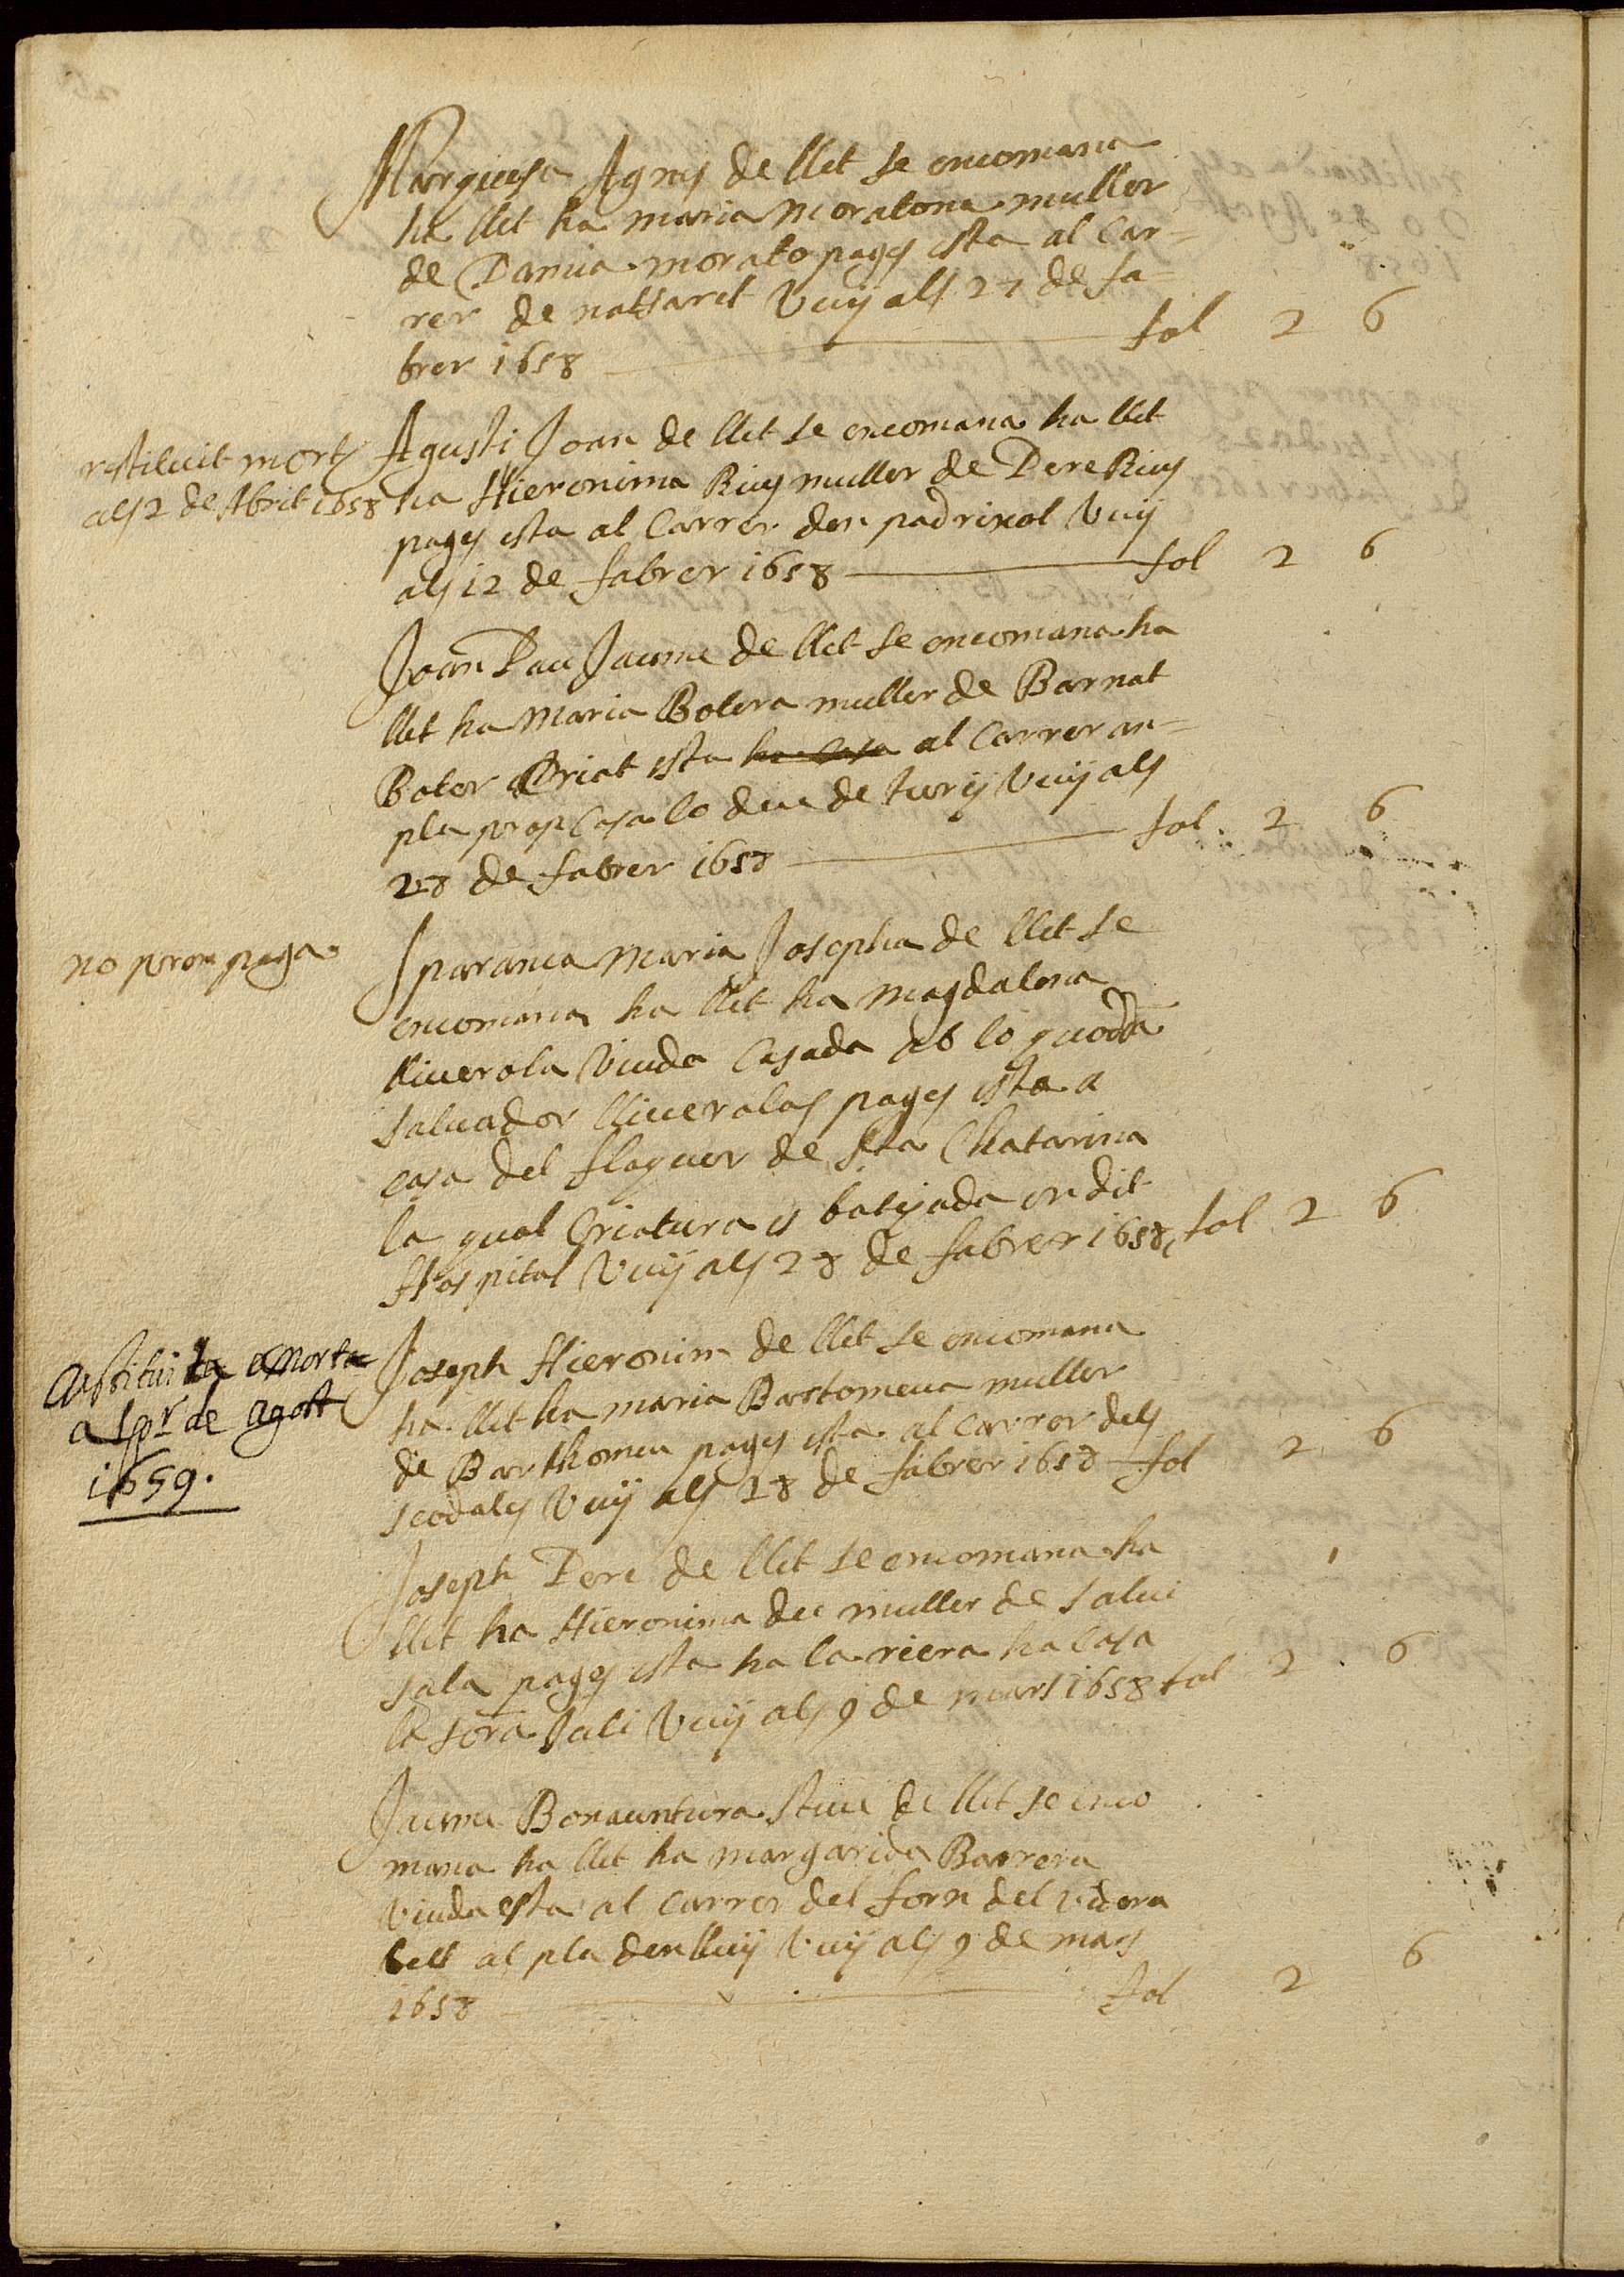 Marquesa Agnes de llet se encomana
ha llet ha maria moratona muller
de Damia morato pages esta al Car=
rer de natsaret Vuij als 27 de fa=
brer 1658 fol 2 6
restituit mort
als 2 de Abril 1658
Agusti Joan de llet se encomana ha llet
ha Hieronima Rius muller de Pere Rius
pages esta al Carrer den padrixol Vuij
als 12 de fabrer 1658 fol 2 6
Joan Pau Jaume de llet se encomana ha
llet ha Maria Botera muller de Barnat
Boter Criat esta ha casa al Carrer an=
ple prop Casa lo duc de Vuij als
28 de fabrer 1658 fol. 2 6
no prom paga
Sparansa Maria Josepha de llet se
encomana ha llet ha Magdalena
lliuerola Viuda Casada ab lo quoda
saluador lliuerolas pages esta a
casa del flaquer de sta Chatarina
la qual Criatura es batejada en dit
Hospital Vuij als 28 de fabrer 1658 fol 2 6
Restituida Morta
a pr de agost
1659.
Joseph Hieronim de llet se encomana
ha llet ha maria Bartomeua muller
de Barthomeu pages esta al Carrer dels
scodales Vuij als 28 de fabrer 1658 fol 2 6
Joseph Pere de llet se encomana ha
llet ha Hieronima muller de salui
sala pages esta ha la riera ha Casa
la sora Juli Vuij als 9 de mars 1658 fol 2 6
Jaume Bonauentura Steue de llet se enco
mana ha llet ha margarida Barrera
Viuda esta al Carrer del forn del
bell al pla den lluij Vuij als 9 de mars
1658 fol 2 6